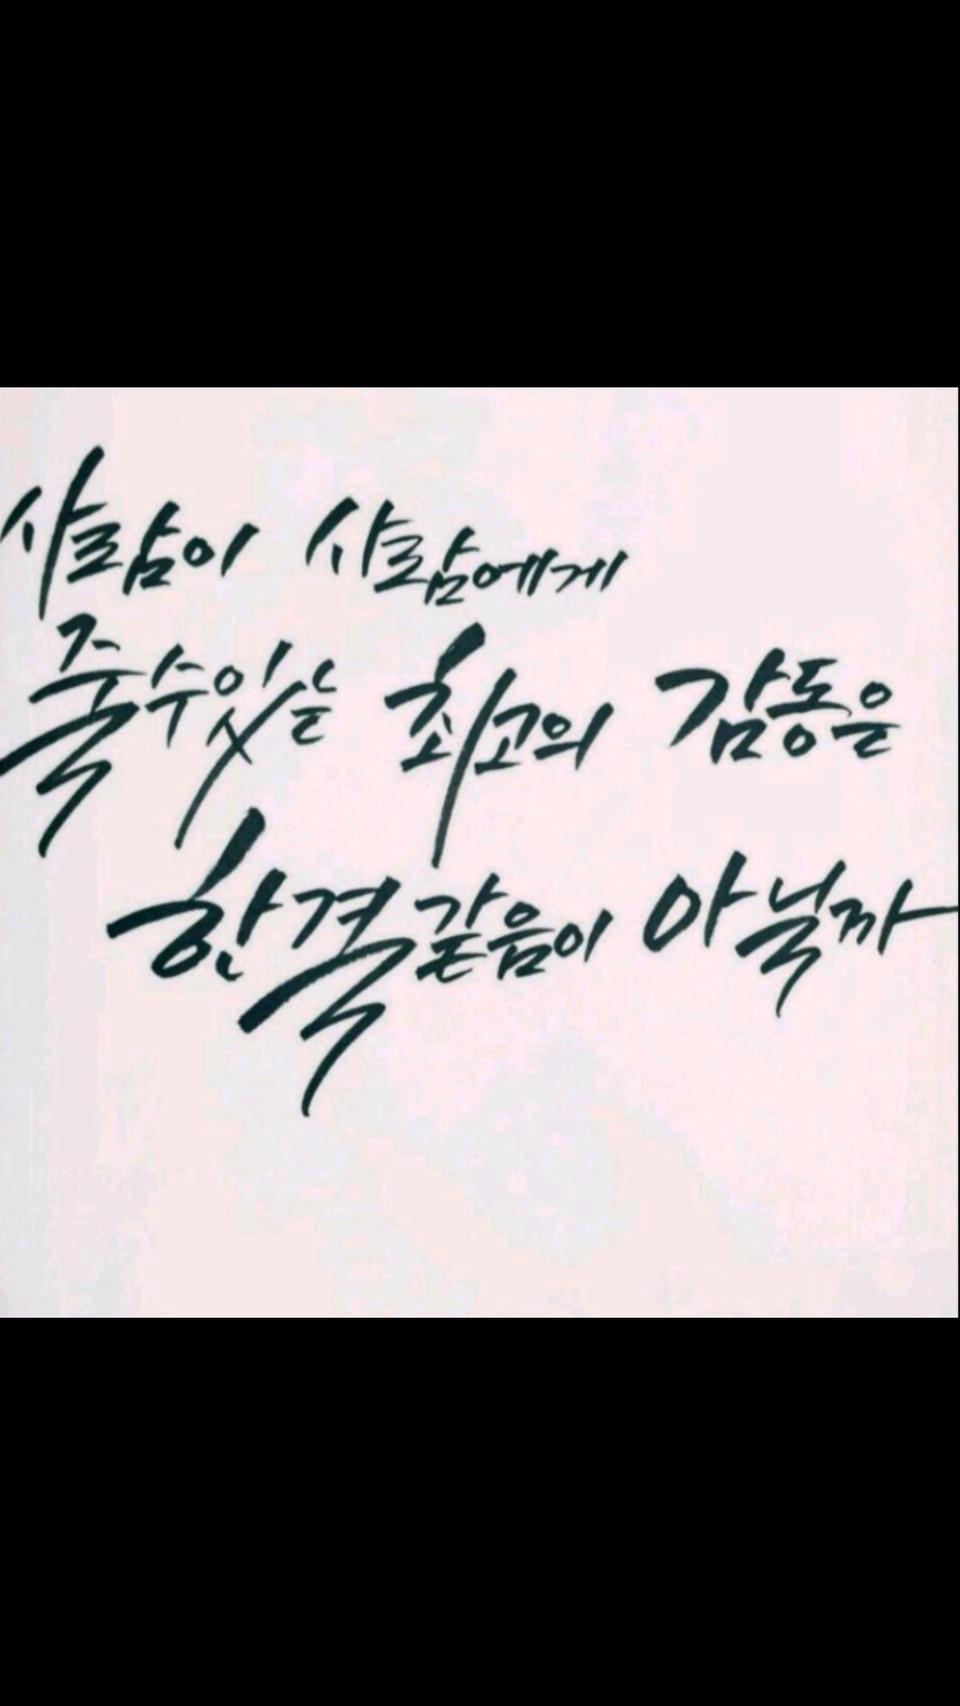 사람이 사람에게
줄수있는 최고의 감동은
한결같음이 아닐까